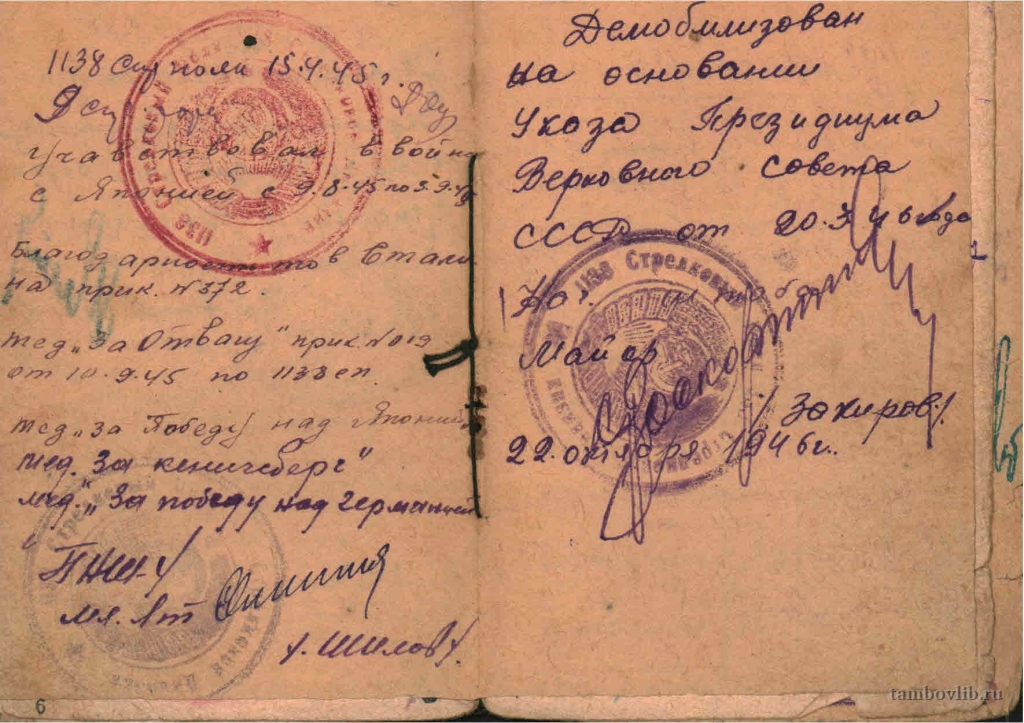 1138 Стр полк 15.4.45 г.
учавствовал в войне
с Японией с 9.8.45 по 3.9.45
Благодарность тов Стали
на прик. N 372.
мед „за Отвагу" прик. N 019
от 10.9.45 по 1138 сп.
мед „за Победу над Японией
мед. За кенигсберг"
мед. „За победу над германией
ПНШ-1
мл. лт
/. Шилов /.
6
Демобилизован
на основании
Указа Президиума
Верховного Совета
СССР от 20.3.46 года
Нач. штаба
Майор
/Закиров/
22. октября 1946 г.
1138 Стрелковый
tambovlib.ru